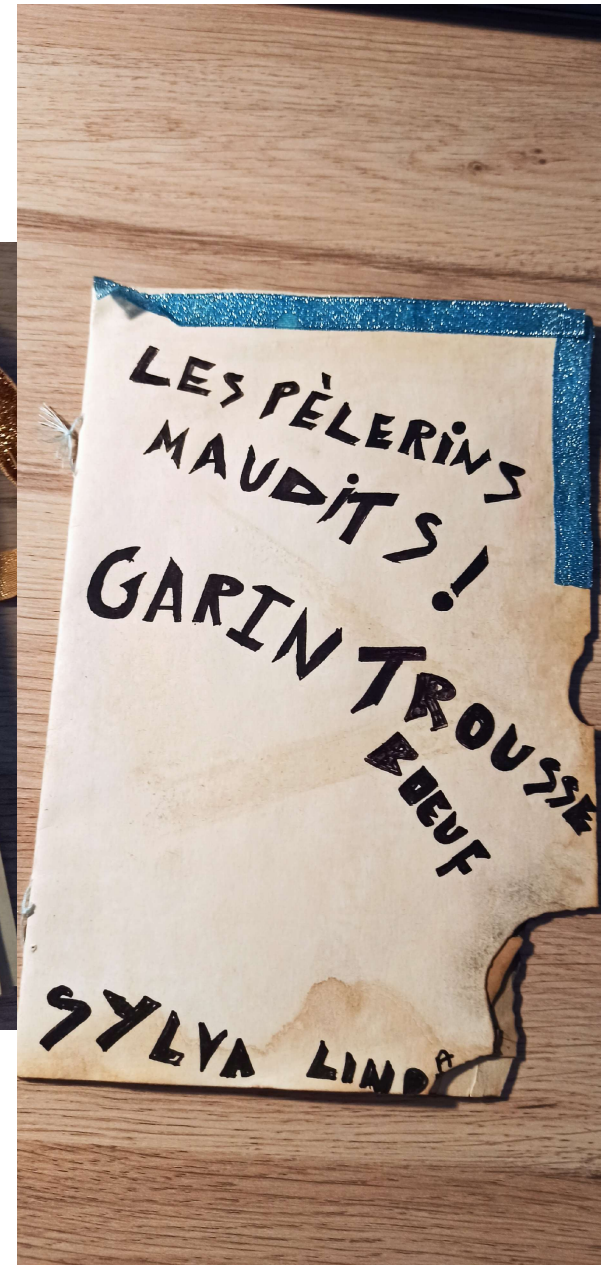 LES PÈLERINS
MAUDITS!
GARIN TROUSSE
BOEUF
SYLVA LINDA